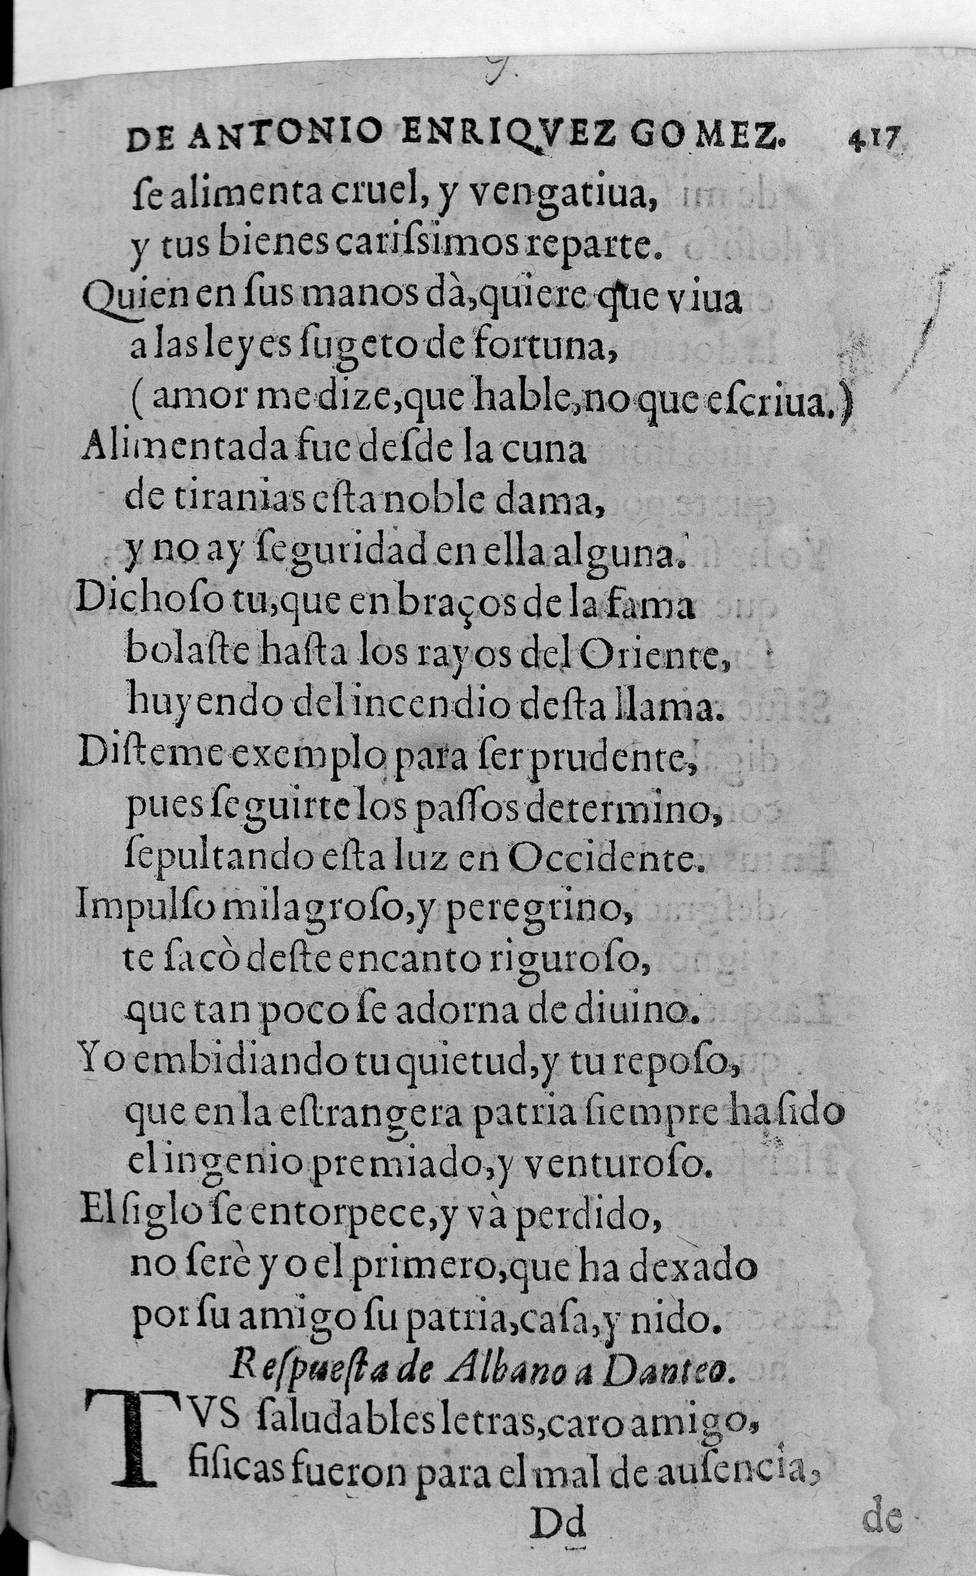 DE ANTONIO ENRIQVEZ GOMEZ. 417
ſe alimenta cruel, y vengatiua,
y tus bienes cariſsimos reparte.
Quien en ſus manos dà, quiere que viua
a las leyes ſugeto de fortuna,
(amor me dize, que hable, no que eſcriua.)
Alimentada fue deſde la cuna
de tiranias eſta noble dama,
y no ay ſeguridad en ella alguna.
Dichoſo tu, que en braços de la fama
bolaſte haſta los rayos del Oriente,
huyendo del incendio deſta llama.
Diſteme exemplo para ſer prudente,
pues ſeguirte los paſſos determino,
ſepultando eſta luz en Occidente.
Impulſo milagroſo, y peregrino,
te ſacò deſte encanto riguroſo,
que tan poco ſe adorna de diuino.
Yo embidiando tu quietud, y tu repoſo,
que en la eſtrangera patria ſiempre ha ſido
el ingenio premiado, y venturoſo.
El ſiglo ſe entorpece, y và perdido,
no ſerè yo el primero, que ha dexado
por ſu amigo ſu patria, caſa, y nido.
Reſpueſta de Albano a Danteo.
TVS ſaludables letras, caro amigo,
fiſicas fueron para el mal de auſencia,
Dd de